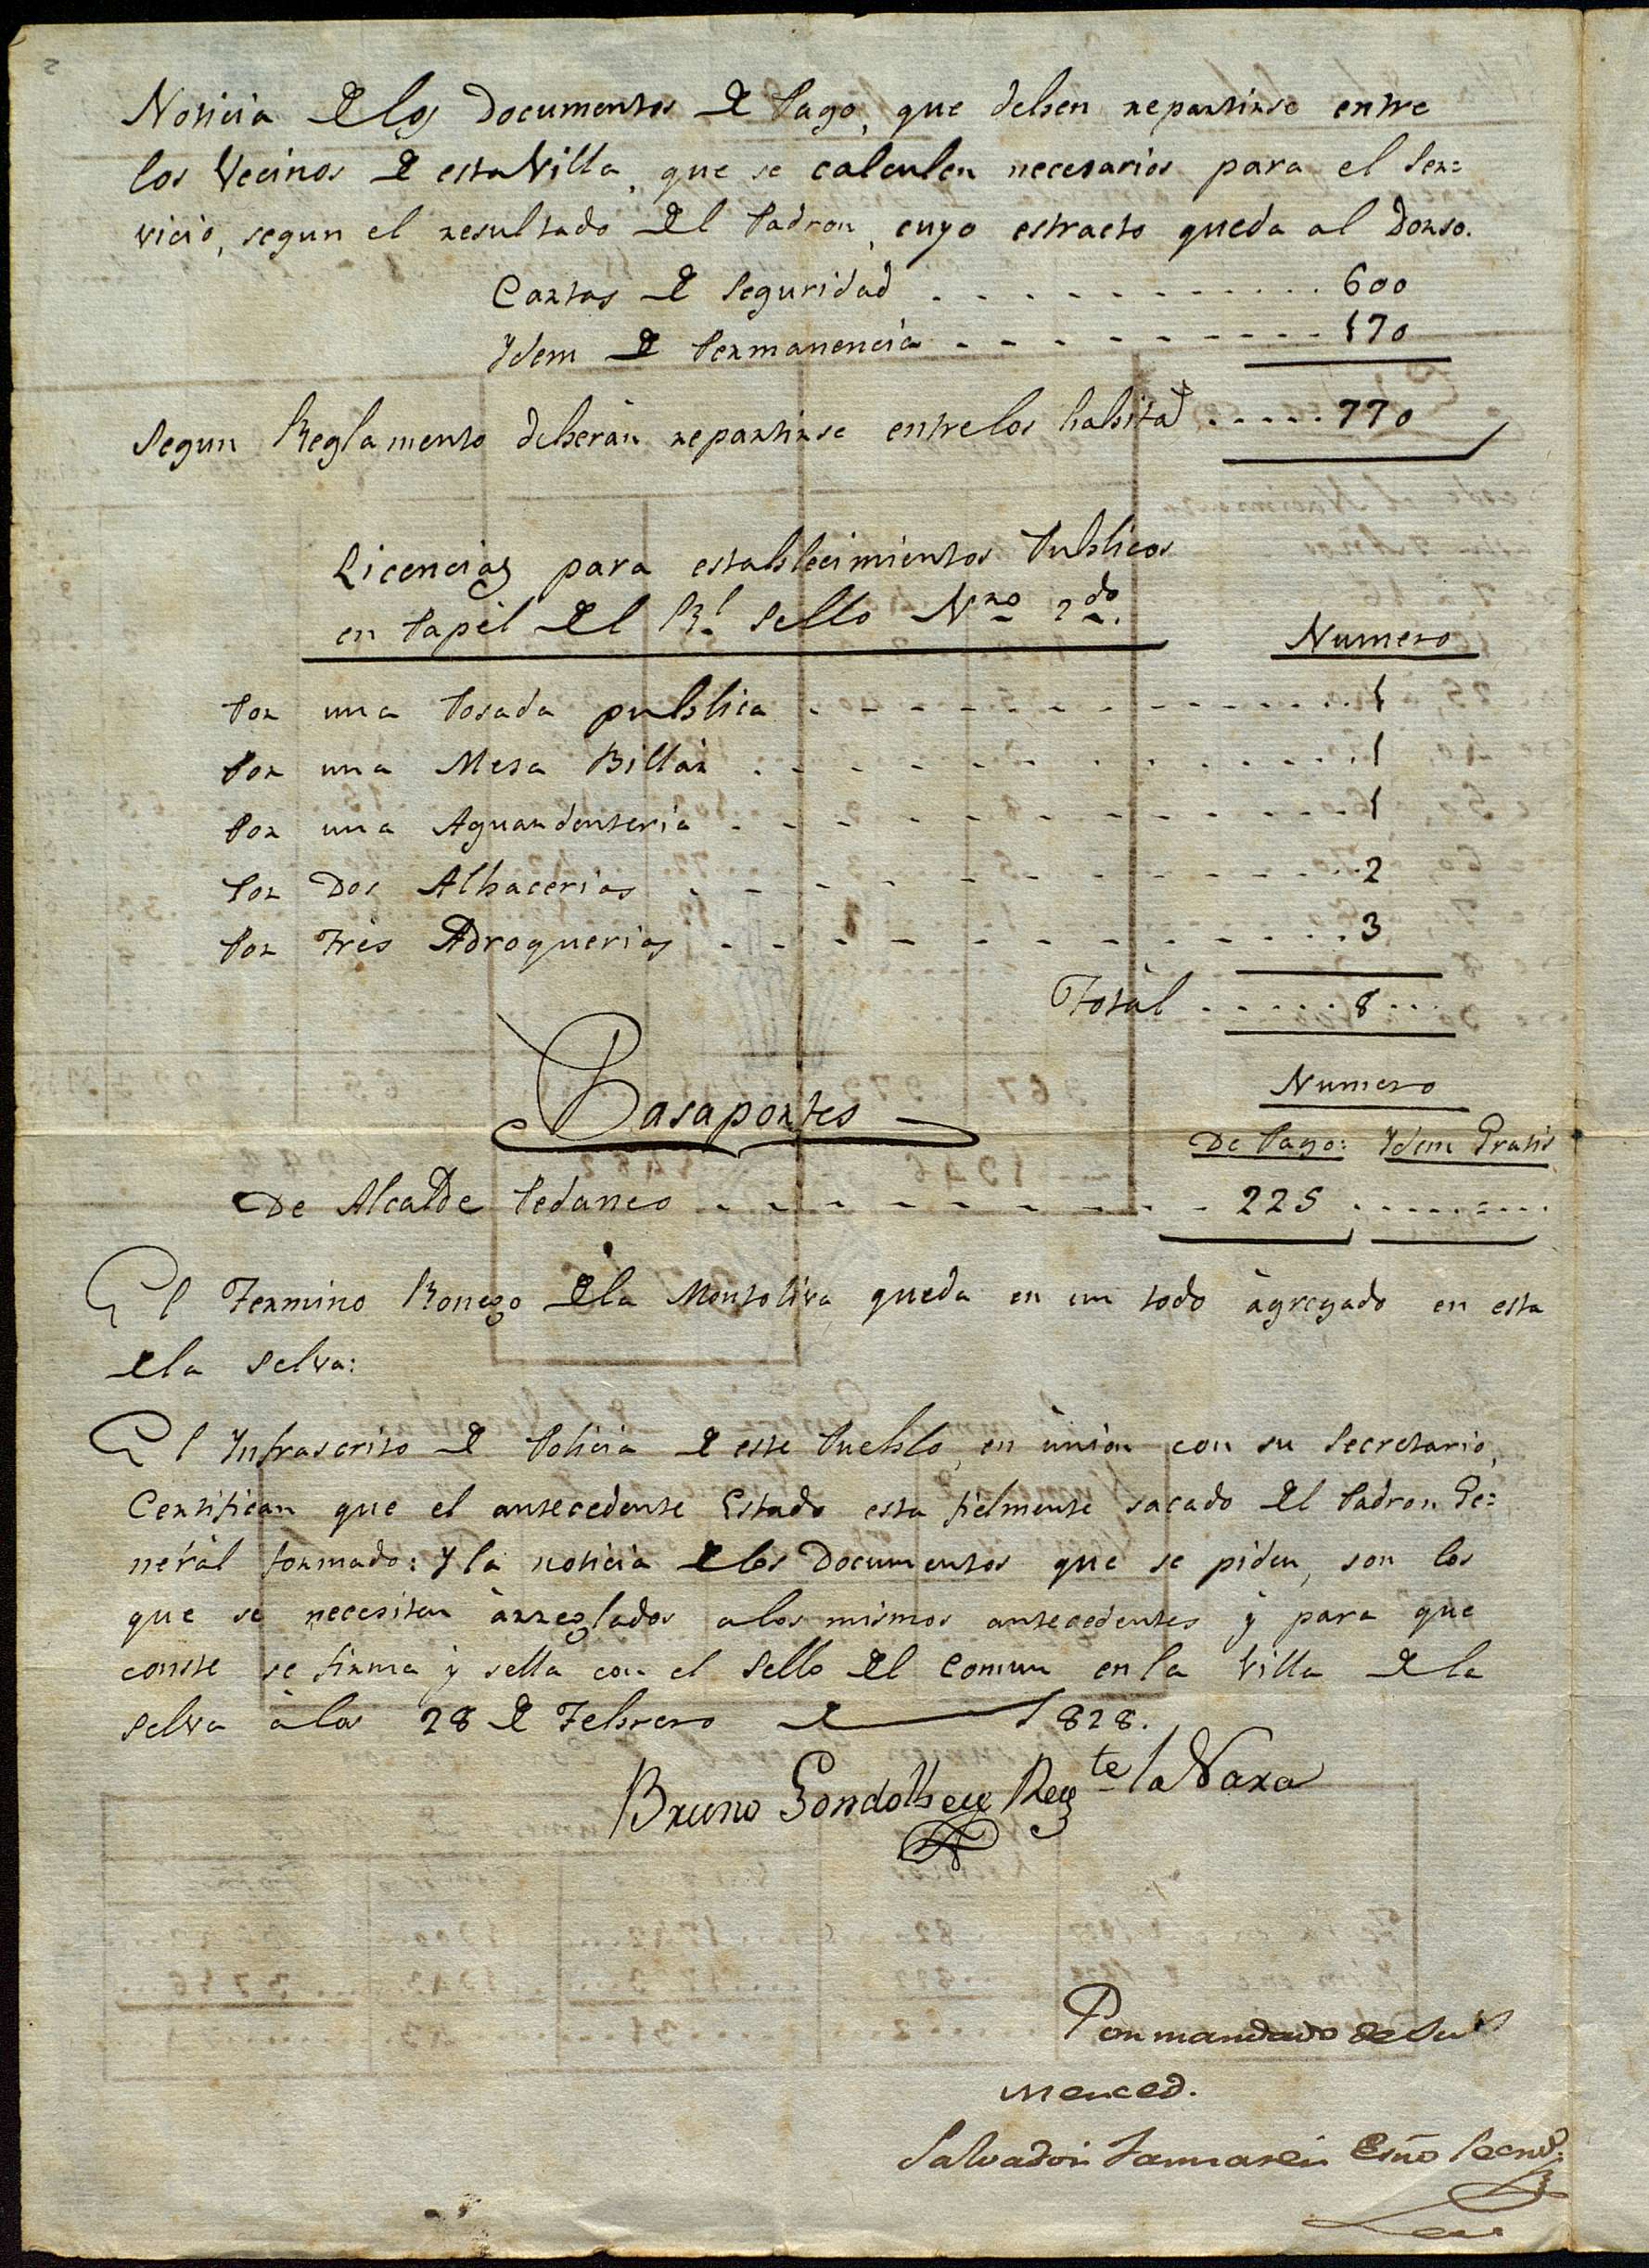 Noticia de los Documentos de Pago, que deben repartirse entre
los Vecinos de esta Villa, que se calculen necesarios para el Ser=
vicio, segun el resultado del Padron, cuyo estracto queda al Dorso.
Cartas de Seguridad . . . . . . . . . . . . 600
Ydem de Permanencia - - - - - - - - - - 170
Segun Reglamento deberàn repartirse entre los habitad . . . . . 770
Licencias para establecimientos Publicos
en Papèl del Rl. Sello Nro 2do.
Numero
Por una Posada publica - - - - - - - - - - - - 1
Por una Mesa Billàr . - - - - - - - - - - - 1
Por una Aguardenteria - - - - - - - - - - - 1
Por Dos Albacerias - - - - - - - - - - - 2
Por Très Adroguerias - - - - - - - - - - - 3
Totàl . . . . . . 8 . . .
Pasaportes
Numero
De Pago: Ydem Gratis
De Alcalde Pedaneo - - - - - - - - - 225 . . . . . = . . .
El Termino Ronego de la Montoliva, queda en un todo àgregado en esta
de la Selva:
El Ynfrascrito de Policia de este Pueblo, en ùnion con su Secretario,
Certifican que el antecedente Estado esta fielmente sacado del Padron Ge=
neràl formado: Y la noticia de los Documentos que se piden, son los
que se necesitan àrreglados a los mismos antecedentes y para que
conste se firma y sella con el Sello del Comun en la Villa de la
Selva à los 28 de Febrero de 1828.
Bruno Regte la Vara
Por mandado de Su
merced.
Salvador Esño Secrio.